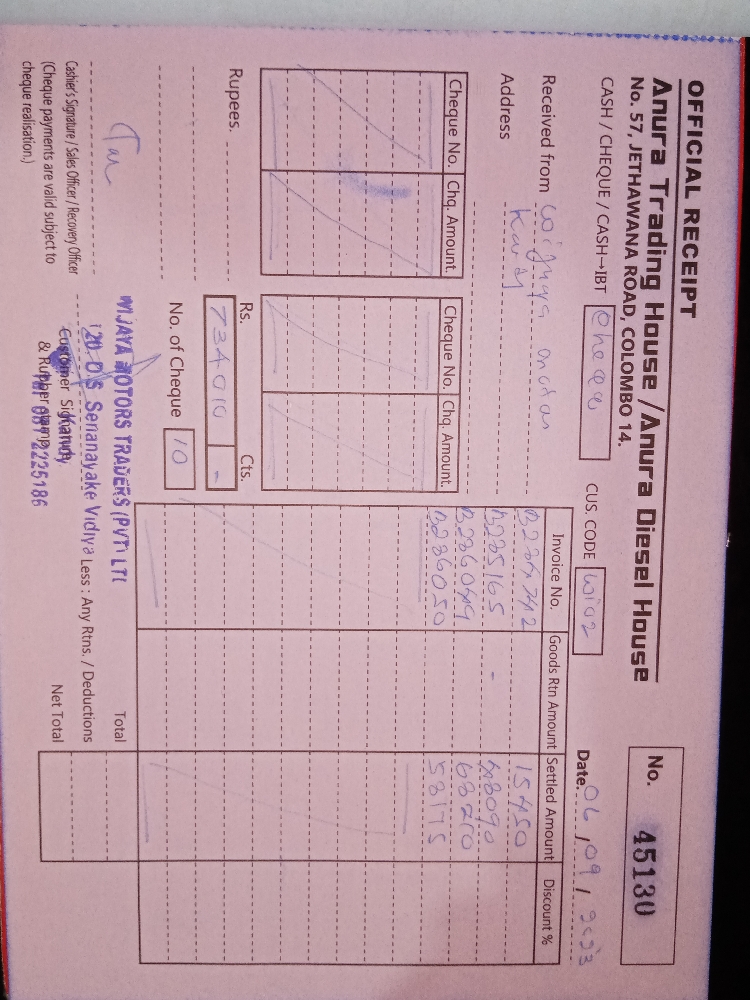 OFFICIAL RECEIPT
Anura Trading House / Anura Diesel House
No. 57, JETHAWANA ROAD, COLOMBO 14.
No. 45130
CASH / CHEQUE / CASH→IBT
CUS. CODE
Date. 06 / 09 /
Received from
Address
Cheque No. Chq. Amount. Cheque No. Chq. Amount.
Invoice No. Goods Rtn Amount Settled Amount Discount %
15450
B235165 -
B236049 68210
B236050 58175
Rupees.
Rs. Cts.
734010 -
No. of Cheque 10
WIJAYA MOTORS TRADERS (PVT) LTD
120. D.S Senanayake Vidiya
Tel 081 2225186
Total
Less : Any Rtns. / Deductions
Net Total
Cashier's Signature / Sales Officer / Recovery Officer
(Cheque payments are valid subject to
cheque realisation.)
Customer Signature
& Rubber stamp